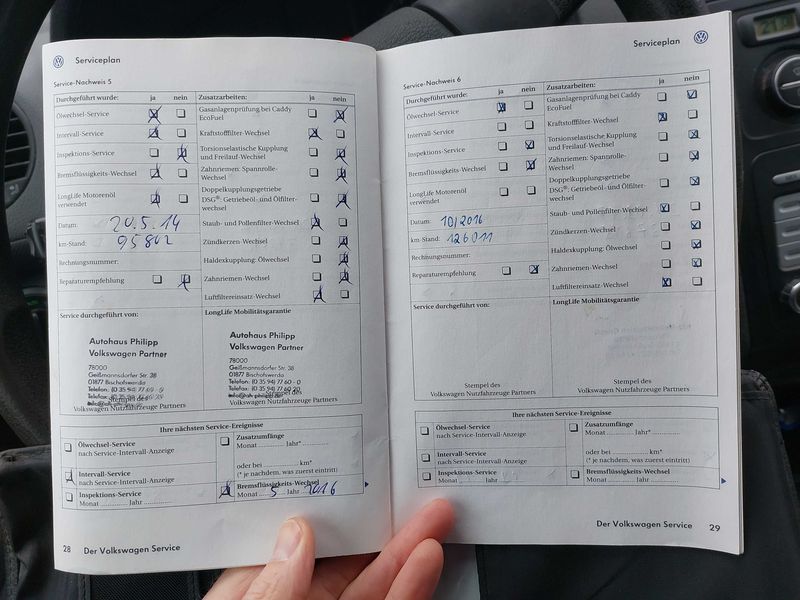 Serviceplan
Service-Nachweis 5
Durchgeführt wurde: ja nein
Ölwechsel-Service
Intervall-Service
Inspektions-Service
Bremsflüssigkeits-Wechsel
LongLife Motorenöl
verwendet
Datum: 20.5.14
km-Stand: 95802
Rechnungsnummer:
Reparaturempfehlung
Zusatzarbeiten: ja nein
Gasanlagenprüfung bei Caddy
EcoFuel
Kraftstofffilter-Wechsel
Torsionselastische Kupplung
und Freilauf-Wechsel
Zahnriemen: Spannrolle-
Wechsel
Doppelkupplungsgetriebe
DSG®: Getriebeöl- und Ölfilter-
wechsel
Staub- und Pollenfilter-Wechsel
Zündkerzen-Wechsel
Haldexkupplung: Ölwechsel
Zahnriemen-Wechsel
Luftfiltereinsatz-Wechsel
Service durchgeführt von:
Autohaus Philipp
Volkswagen Partner
78000
Geißmannsdorfer Str. 38
01877 Bischofswerda
Telefon: (0 35 94) 77 60 - 0
Stempel des
Volkswagen Nutzfahrzeuge Partners
LongLife Mobilitätsgarantie
Autohaus Philipp
Volkswagen Partner
78000
Geißmannsdorfer Str. 38
01877 Bischofswerda
Telefon: (0 35 94) 77 60 - 0
Stempel des
Volkswagen Nutzfahrzeuge Partners
Ihre nächsten Service-Ereignisse
Ölwechsel-Service
nach Service-Intervall-Anzeige
Intervall-Service
nach Service-Intervall-Anzeige
Inspektions-Service
Monat Jahr
Zusatzumfänge
Monat Jahr*
oder bei km*
(* je nachdem, was zuerst eintritt)
Bremsflüssigkeits-Wechsel
Monat 5 Jahr 2016
28 Der Volkswagen Service
Serviceplan
Service-Nachweis 6
Durchgeführt wurde: ja nein
Ölwechsel-Service
Intervall-Service
Inspektions-Service
Bremsflüssigkeits-Wechsel
LongLife Motorenöl
verwendet
Datum: 10/2016
km-Stand: 126011
Rechnungsnummer:
Reparaturempfehlung
Zusatzarbeiten: ja nein
Gasanlagenprüfung bei Caddy
EcoFuel
Kraftstofffilter-Wechsel
Torsionselastische Kupplung
und Freilauf-Wechsel
Zahnriemen: Spannrolle-
Wechsel
Doppelkupplungsgetriebe
DSG®: Getriebeöl- und Ölfilter-
wechsel
Staub- und Pollenfilter-Wechsel
Zündkerzen-Wechsel
Haldexkupplung: Ölwechsel
Zahnriemen-Wechsel
Luftfiltereinsatz-Wechsel
Service durchgeführt von:
Stempel des
Volkswagen Nutzfahrzeuge Partners
LongLife Mobilitätsgarantie
Stempel des
Volkswagen Nutzfahrzeuge Partners
Ihre nächsten Service-Ereignisse
Ölwechsel-Service
nach Service-Intervall-Anzeige
Intervall-Service
nach Service-Intervall-Anzeige
Inspektions-Service
Monat Jahr
Zusatzumfänge
Monat Jahr*
oder bei km*
(* je nachdem, was zuerst eintritt)
Bremsflüssigkeits-Wechsel
Monat Jahr
Der Volkswagen Service 29